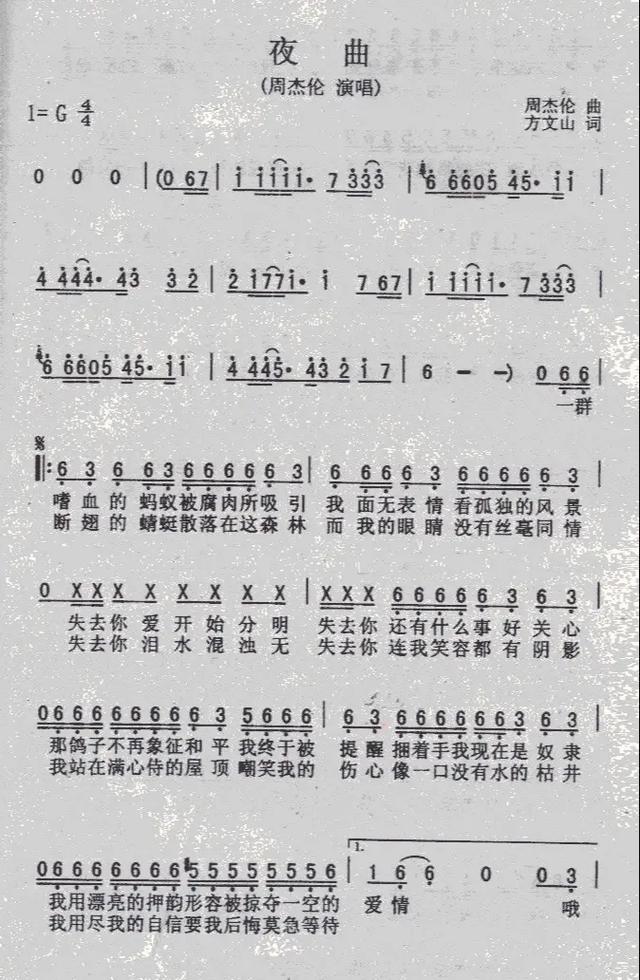 夜 曲
(周杰伦 演唱)
1= G 4/4
周杰伦 曲
方文山 词
0 0 0 | (0 67 | i iiii· 7 333 | 6 6605 45· ii |
4 444· 43 3 2 | 2 i77i· i 7 67 | i iiii· 7 333 |
6 6605 45· ii | 4 445· 43 2 i 7 | 6 – –) 0 6 6 |
一群
6 3 6 6 3 6 6 6 6 6 3 | 6 6 6 6 3 6 6 6 6 6 3 |
嗜血的 蚂蚁被腐肉所吸引 我 面无表情看孤独的风景
断翅的 蜻蜓散落在这森林 而我的眼睛没有丝毫同情
0 X X X X X X X | X X X 6 6 6 6 6 3 6 3 |
失去你 爱开始分明 失去你 还有什么事好关心
失去你 泪水混浊无 失去你 连我笑容都有阴影
0 6 6 6 6 6 6 6 6 3 5 6 6 6 | 6 3 6 6 6 6 6 6 6 6 3 |
那鸽子不再象征和平我终于被 提醒捆着手我现在是奴隶
我站在满心侍的屋顶嘲笑我的 伤心像一口没有水的枯井
1.
0 6 6 6 6 6 6 6 5 5 5 5 5 5 5 6 | 1 6 6 0 0 3 |
我用漂亮的押韵形容被掠夺一空的 爱情 哦
我用尽我的自信要我后悔莫急等待